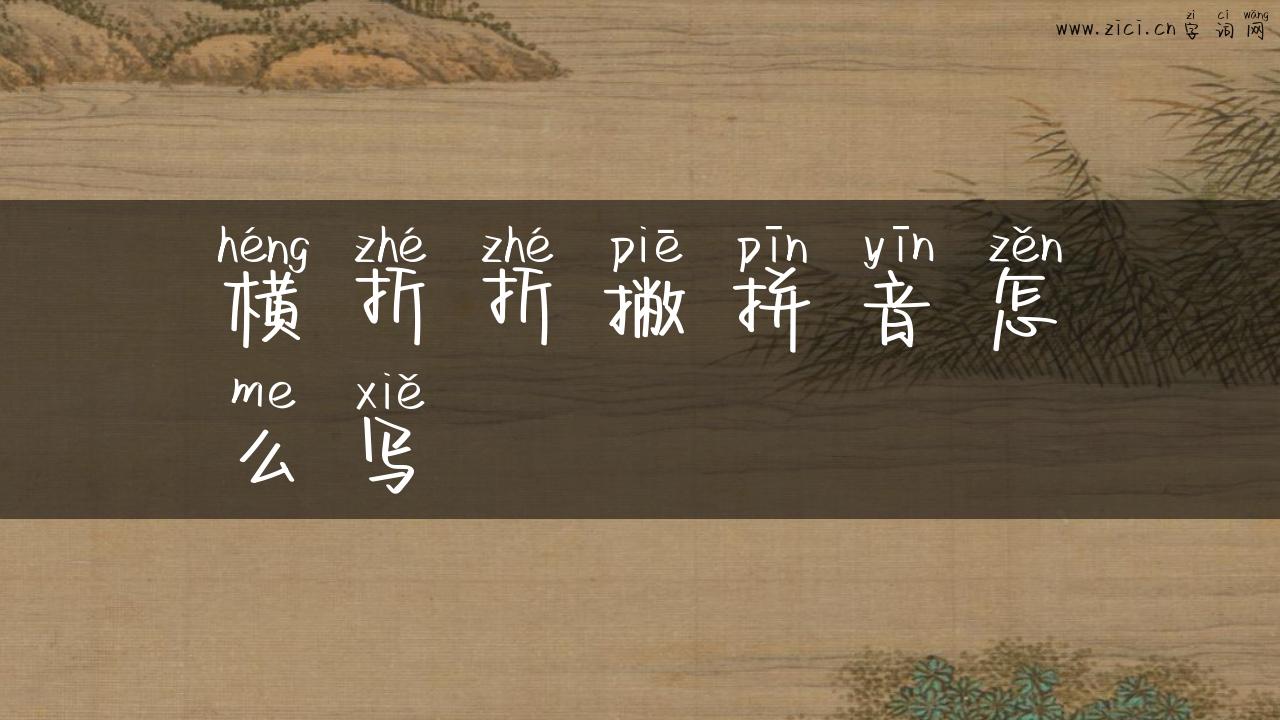 zì cí wǎng
www.zici.cn 字 词 网
héng zhé zhé piē pīn yīn zěn
横 折 折 撇 拼 音 怎
me xiě
么 写